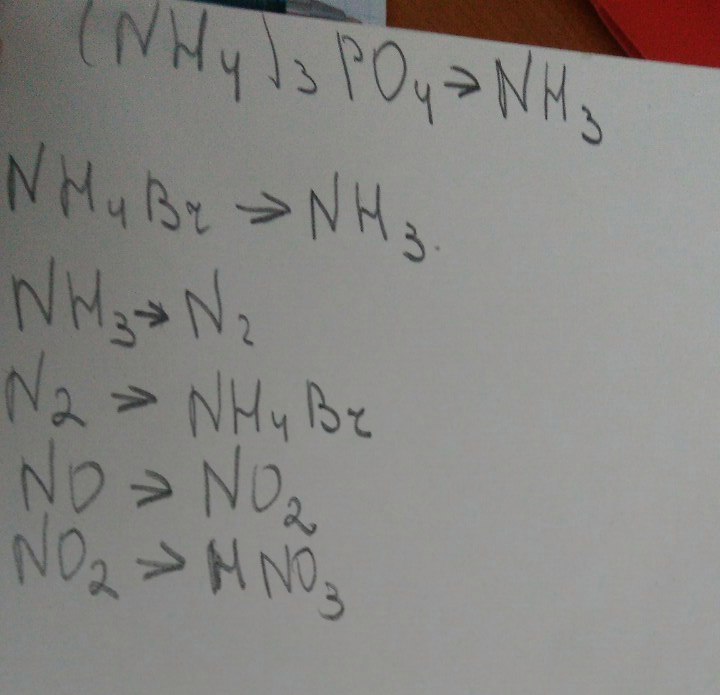 (NH₄)₃PO₄ → NH₃
NH₄Br → NH₃.
NH₃ → N₂
N₂ → NH₄Br
NO → NO₂
NO₂ → HNO₃